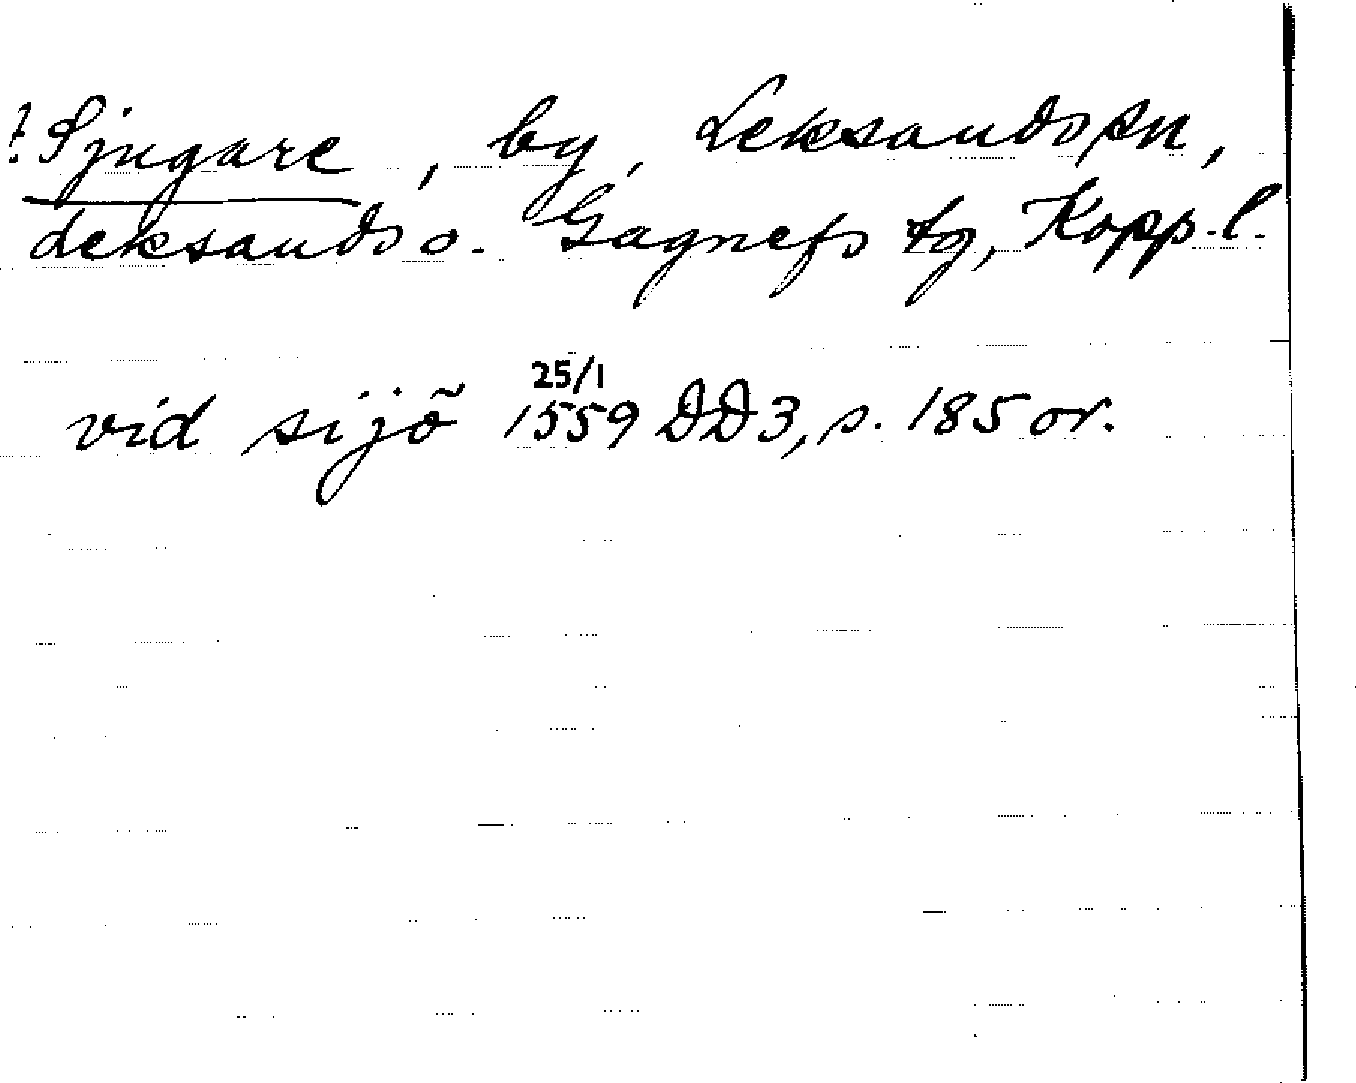 ? Sjugare, by, Leksands sn,
Leksands o. Gagnefs tg, Kopp. l.
vid sijõ 25/1 1559 DD3, s. 185 or.